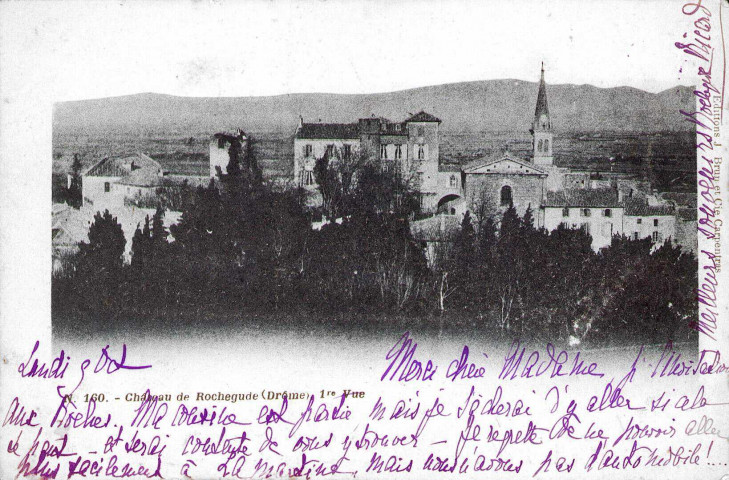 Meilleurs souvenirs
Editions J. Brun et Cie Carpentras
Lundi 9 Oct
Merci chère Madame, j'
N. 160. - Château de Rochegude (Drôme) 1re Vue
aux Roches. Ma cousine est partie mais je tâcherai d'y aller si cela
se peut - et serai contente de vous y trouver - Je regrette de ne pouvoir aller
plus facilement à La Martine, mais nous n'avons pas d'automobile!...